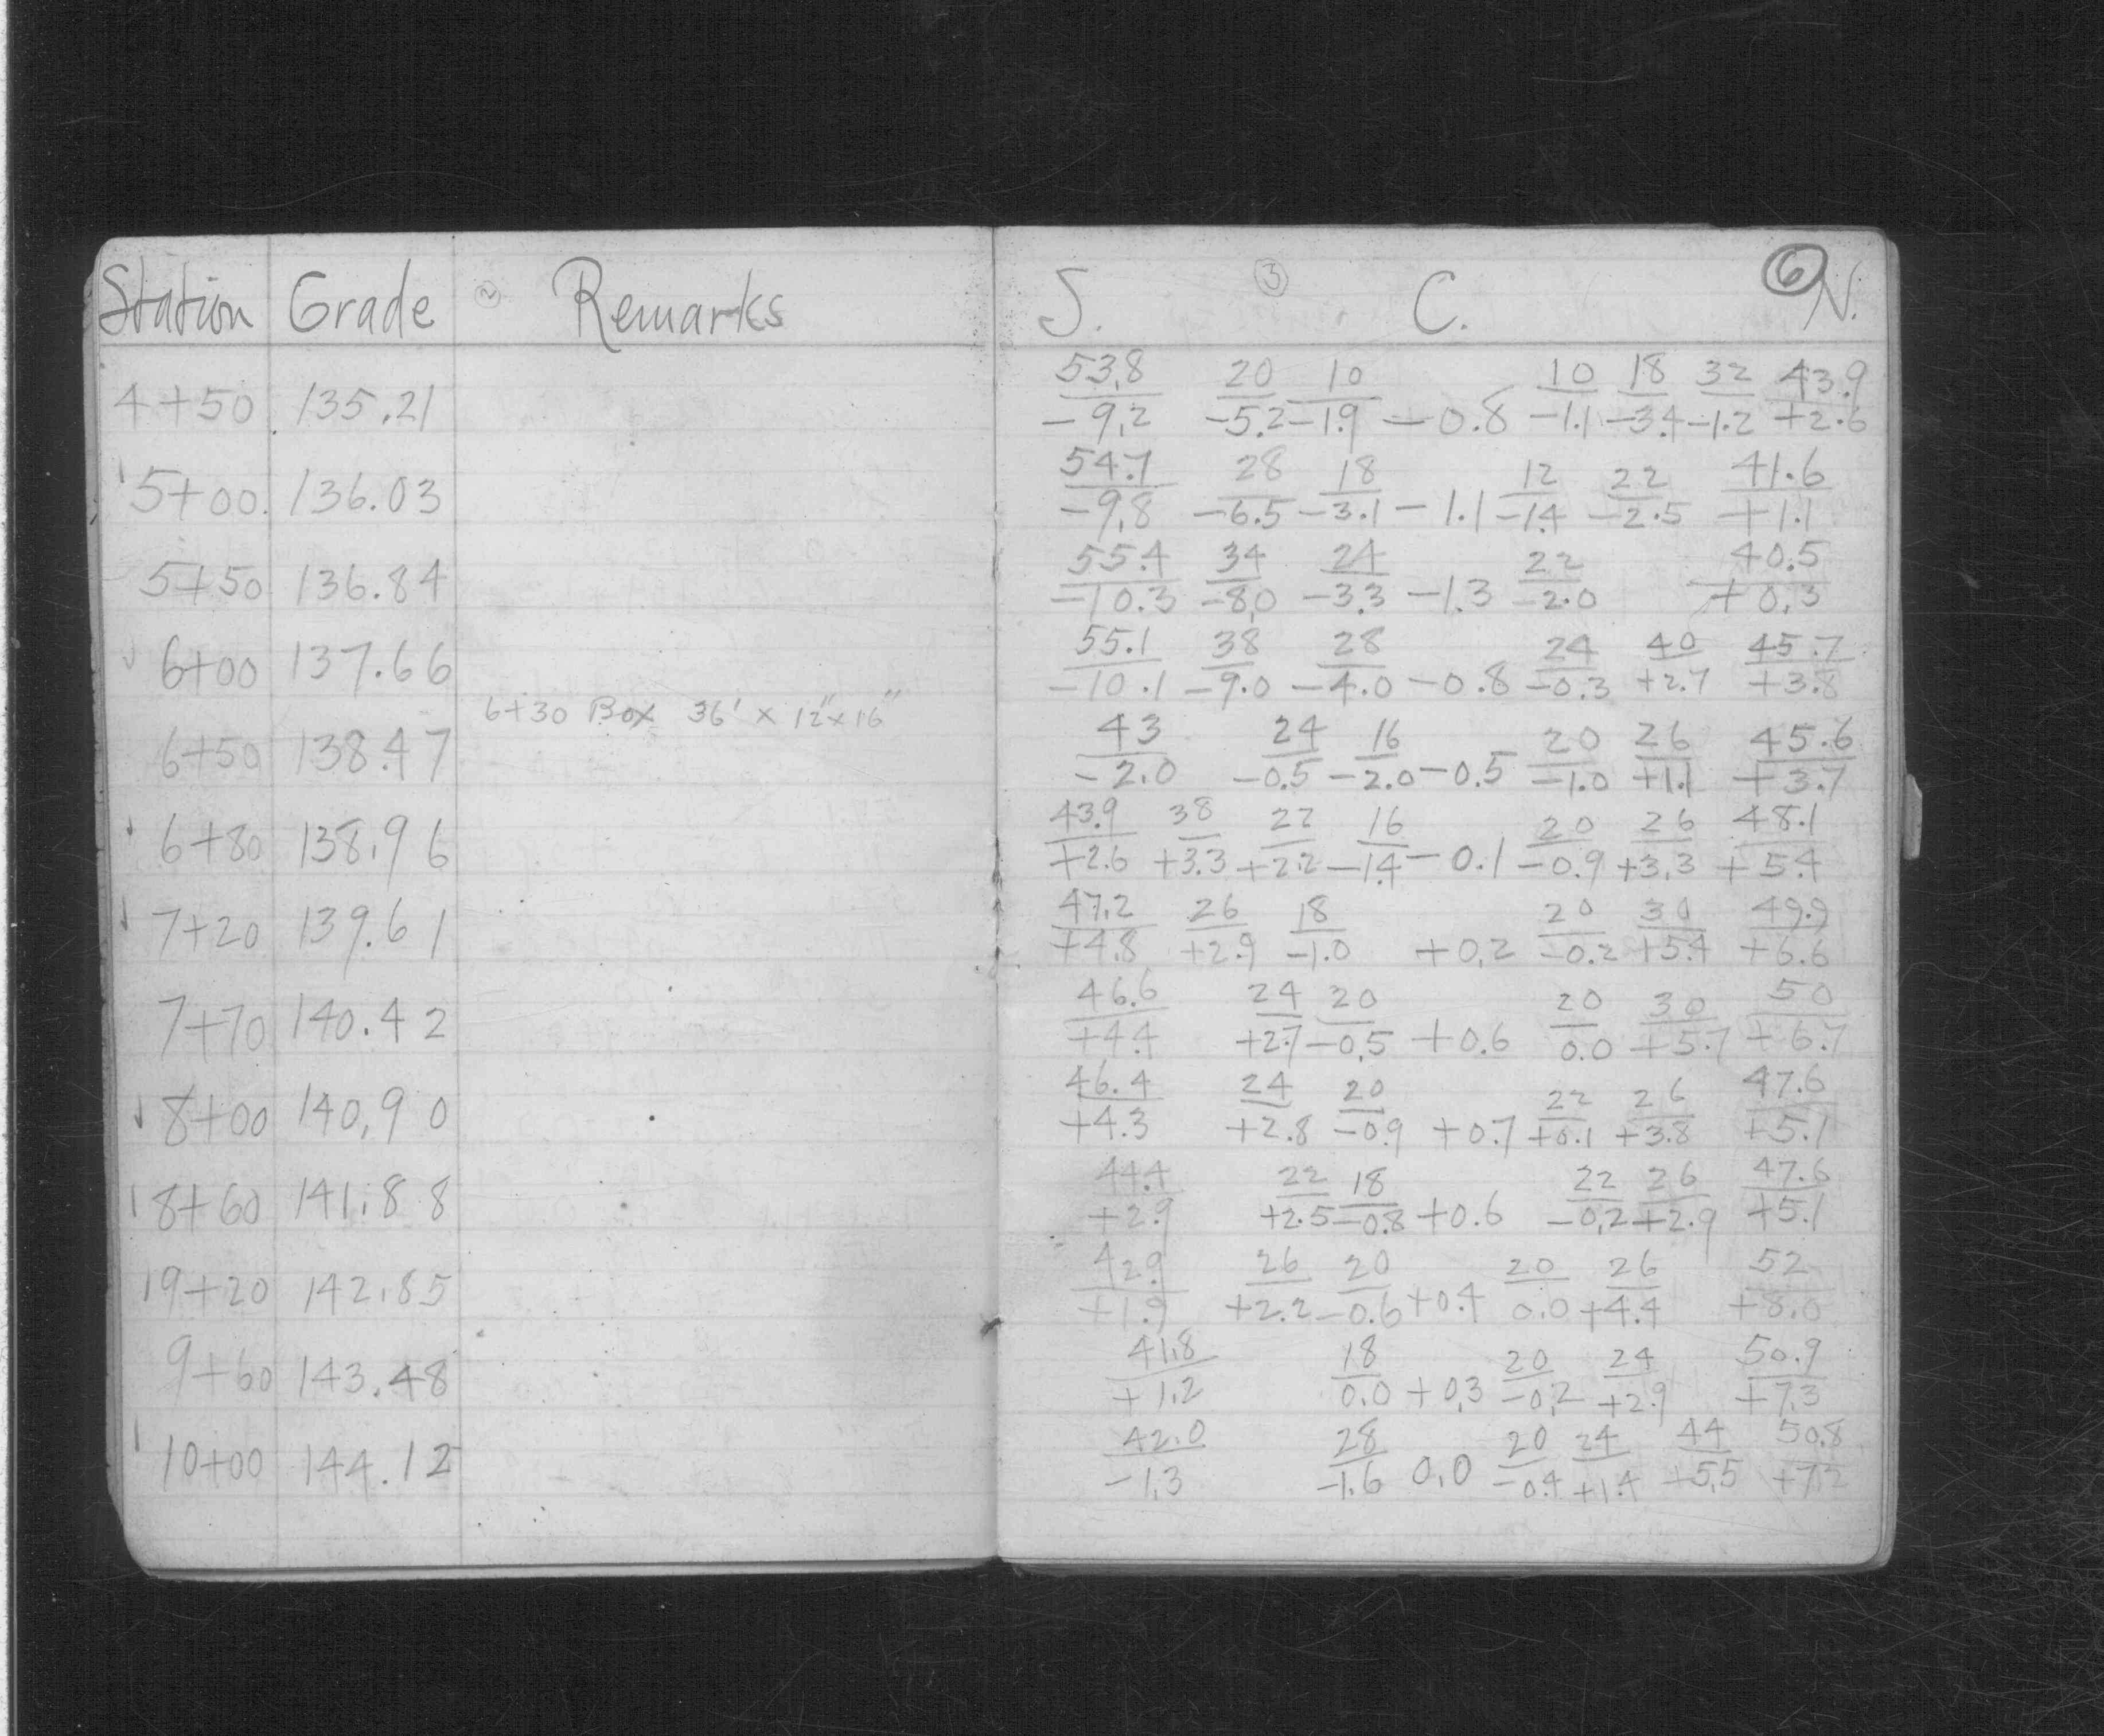 Station Grade ② Remarks S. ③ C. ⑥ N.
53.8 20 10 10 18 32 43.9
4+50 135.21 -9.2 -5.2 -1.9 -0.8 -1.1 -3.4 -1.2 +2.6
54.7 28 18 12 22 41.6
5+00 136.03 -9.8 -6.5 -3.1 -1.1 -1.4 -2.5 +1.1
55.4 34 24 22 40.5
5+50 136.84 -10.3 -8.0 -3.3 -1.3 -2.0 +0.3
55.1 38 28 24 40 45.7
6+00 137.66 -10.1 -9.0 -4.0 -0.8 -0.3 +2.7 +3.8
6+30 Box 36' x 12" x 16"
43 24 16 20 26 45.6
6+50 138.47 -2.0 -0.5 -2.0 -0.5 -1.0 +1.1 +3.7
43.9 38 22 16 20 26 48.1
6+80 138.96 +2.6 +3.3 +2.2 -1.4 -0.1 -0.9 +3.3 +5.4
47.2 26 18 20 30 49.9
7+20 139.61 +4.8 +2.9 -1.0 +0.2 -0.2 +5.4 +6.6
46.6 24 20 20 30 50
7+70 140.42 +4.4 +2.7 -0.5 +0.6 0.0 +5.7 +6.7
46.4 24 20 22 26 47.6
8+00 140.90 +4.3 +2.8 -0.9 +0.7 +0.1 +3.8 +5.1
44.4 22 18 22 26 47.6
8+60 141.88 +2.9 +2.5 -0.8 +0.6 -0.2 +2.9 +5.1
42.9 26 20 20 26 52
9+20 142.85 +1.9 +2.2 -0.6 +0.4 0.0 +4.4 +8.0
41.8 18 20 24 50.9
9+60 143.48 +1.2 0.0 +0.3 -0.2 +2.9 +7.3
42.0 28 20 24 44 50.8
10+00 144.12 -1.3 -1.6 0.0 -0.4 +1.4 +5.5 +7.2